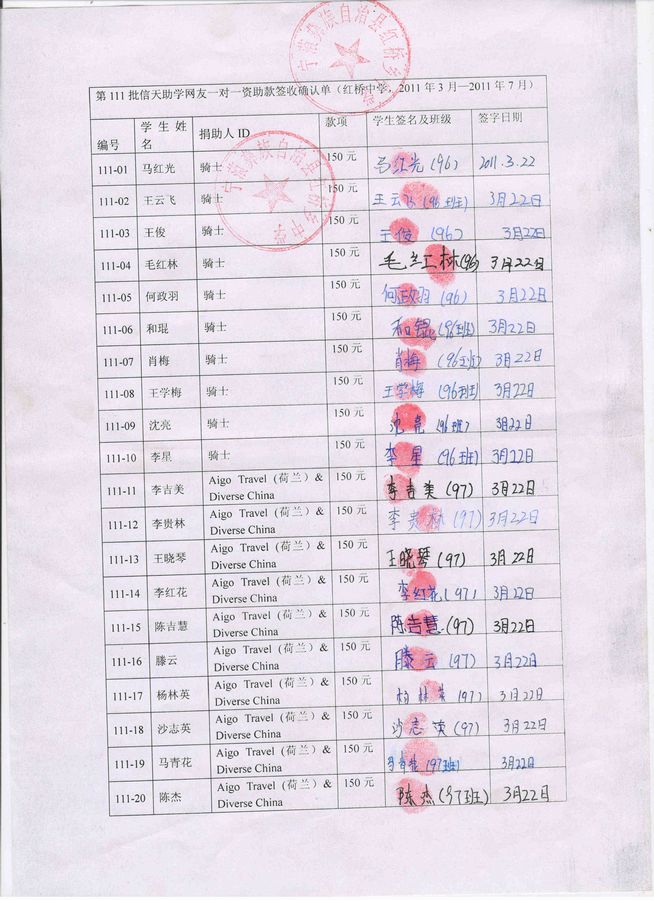 宁蒗彝族自治县红桥乡
第 111 批信天助学网友一对一资助款签收确认单（红桥中学，2011 年 3 月—2011 年 7 月）
编号 学生姓名 捐助人 ID 款项 学生签名及班级 签字日期
宁蒗彝族自治县红桥乡中学
111-01 马红光 骑士 150 元 马红光 (96) 2011.3.22
111-02 王云飞 骑士 150 元 王云飞 (96班) 3月22日
111-03 王俊 骑士 150 元 王俊 (96) 3月22日
111-04 毛红林 骑士 150 元 毛红林 (96) 3月22日
111-05 何政羽 骑士 150 元 何政羽 (96) 3月22日
111-06 和琨 骑士 150 元 和锟 (96班) 3月22日
111-07 肖梅 骑士 150 元 肖梅 (96班) 3月22日
111-08 王学梅 骑士 150 元 王学梅 (96班) 3月22日
111-09 沈亮 骑士 150 元 沈亮 (96班) 3月22日
111-10 李星 骑士 150 元 李星 (96班) 3月22日
111-11 李吉美 Aigo Travel (荷兰) & Diverse China 150 元 李吉美 (97) 3月22日
111-12 李贵林 Aigo Travel (荷兰) & Diverse China 150 元 李贵林 (97) 3月22日
111-13 王晓琴 Aigo Travel (荷兰) & Diverse China 150 元 王晓琴 (97) 3月22日
111-14 李红花 Aigo Travel (荷兰) & Diverse China 150 元 李红花 (97) 3月22日
111-15 陈吉慧 Aigo Travel (荷兰) & Diverse China 150 元 陈吉慧 (97) 3月22日
111-16 滕云 Aigo Travel (荷兰) & Diverse China 150 元 滕云 (97) 3月22日
111-17 杨林英 Aigo Travel (荷兰) & Diverse China 150 元 杨林英 (97) 3月22日
111-18 沙志英 Aigo Travel (荷兰) & Diverse China 150 元 沙志英 (97) 3月22日
111-19 马青花 Aigo Travel (荷兰) & Diverse China 150 元 马青花 (97班) 3月22日
111-20 陈杰 Aigo Travel (荷兰) & Diverse China 150 元 陈杰 (97班) 3月22日